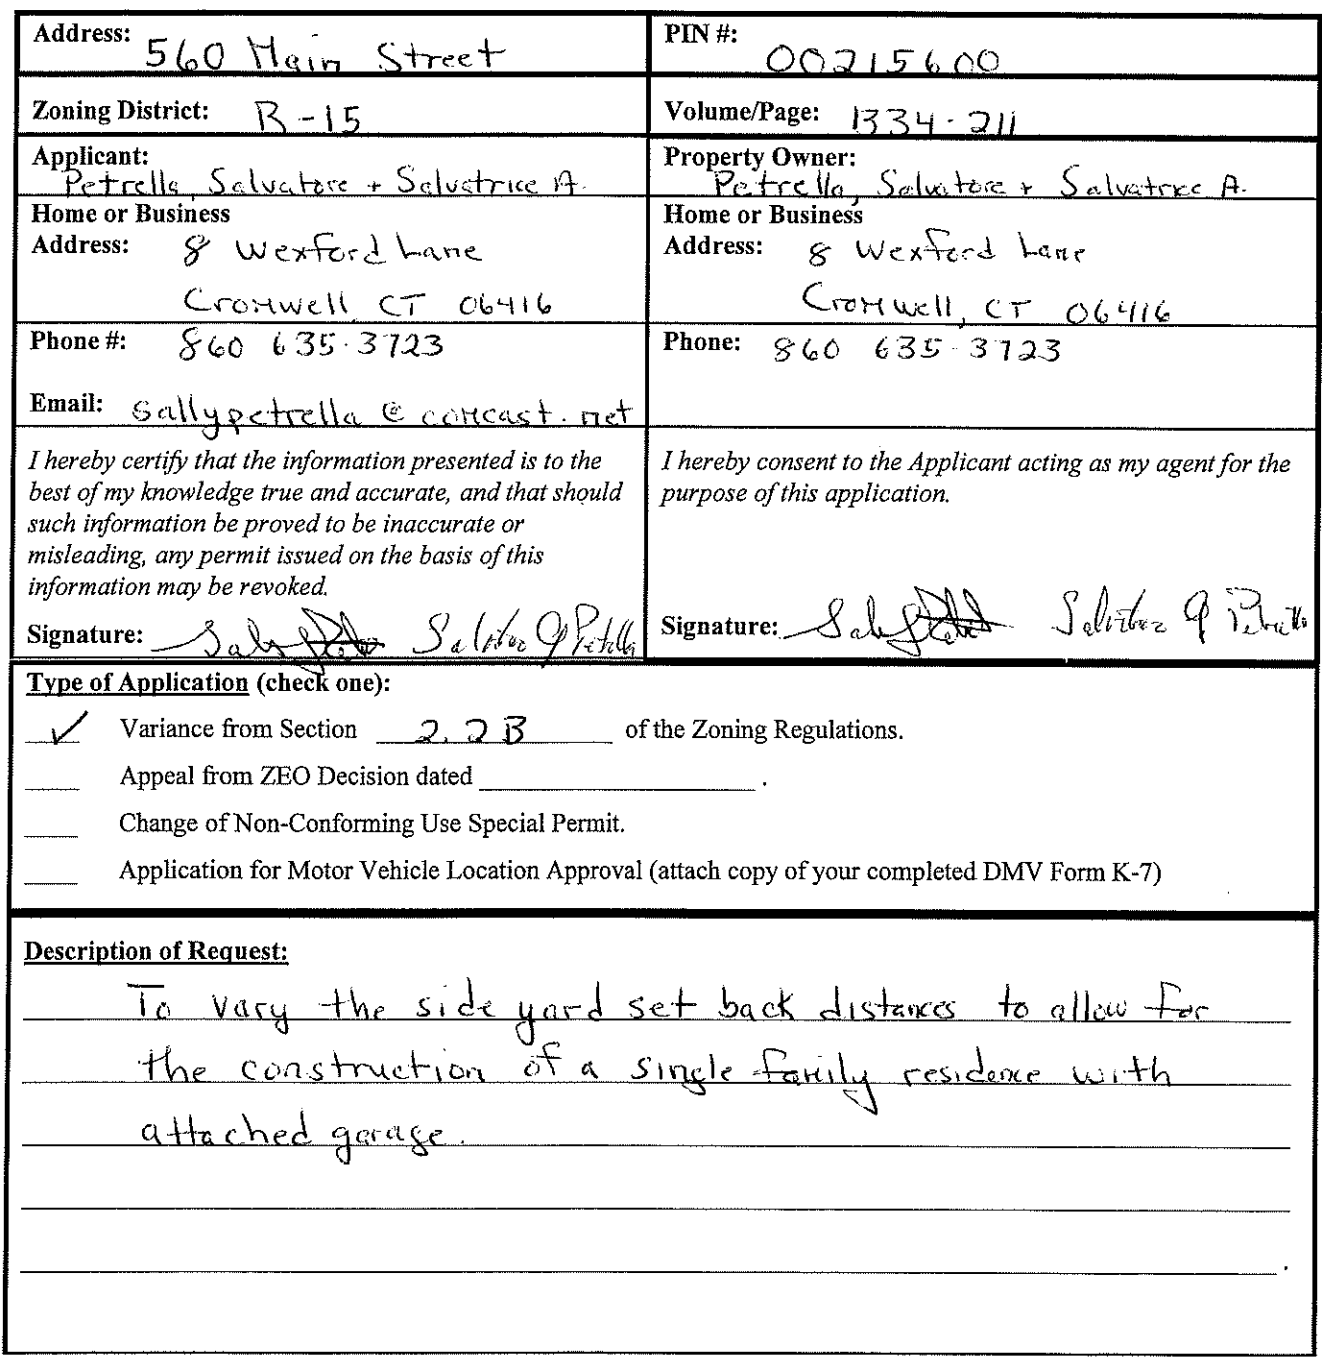 Address: 560 Main Street
PIN #: 00215600
Zoning District: R-15
Volume/Page: 1334-211
Applicant:
Petrella, Salvatore + Salvatrice A.
Property Owner:
Petrella, Salvatore + Salvatrice A.
Home or Business
Address: 8 Wexford Lane
Cromwell, CT 06416
Home or Business
Address: 8 Wexford Lane
Cromwell, CT 06416
Phone #: 860 635-3723
Phone: 860 635-3723
Email: sallypetrella @ comcast.net
I hereby certify that the information presented is to the
best of my knowledge true and accurate, and that should
such information be proved to be inaccurate or
misleading, any permit issued on the basis of this
information may be revoked.
Signature:
I hereby consent to the Applicant acting as my agent for the
purpose of this application.
Signature:
Type of Application (check one):
✓ Variance from Section 2.2B of the Zoning Regulations.
Appeal from ZEO Decision dated .
Change of Non-Conforming Use Special Permit.
Application for Motor Vehicle Location Approval (attach copy of your completed DMV Form K-7)
Description of Request:
To vary the side yard set back distances to allow for
the construction of a single family residence with
attached garage.